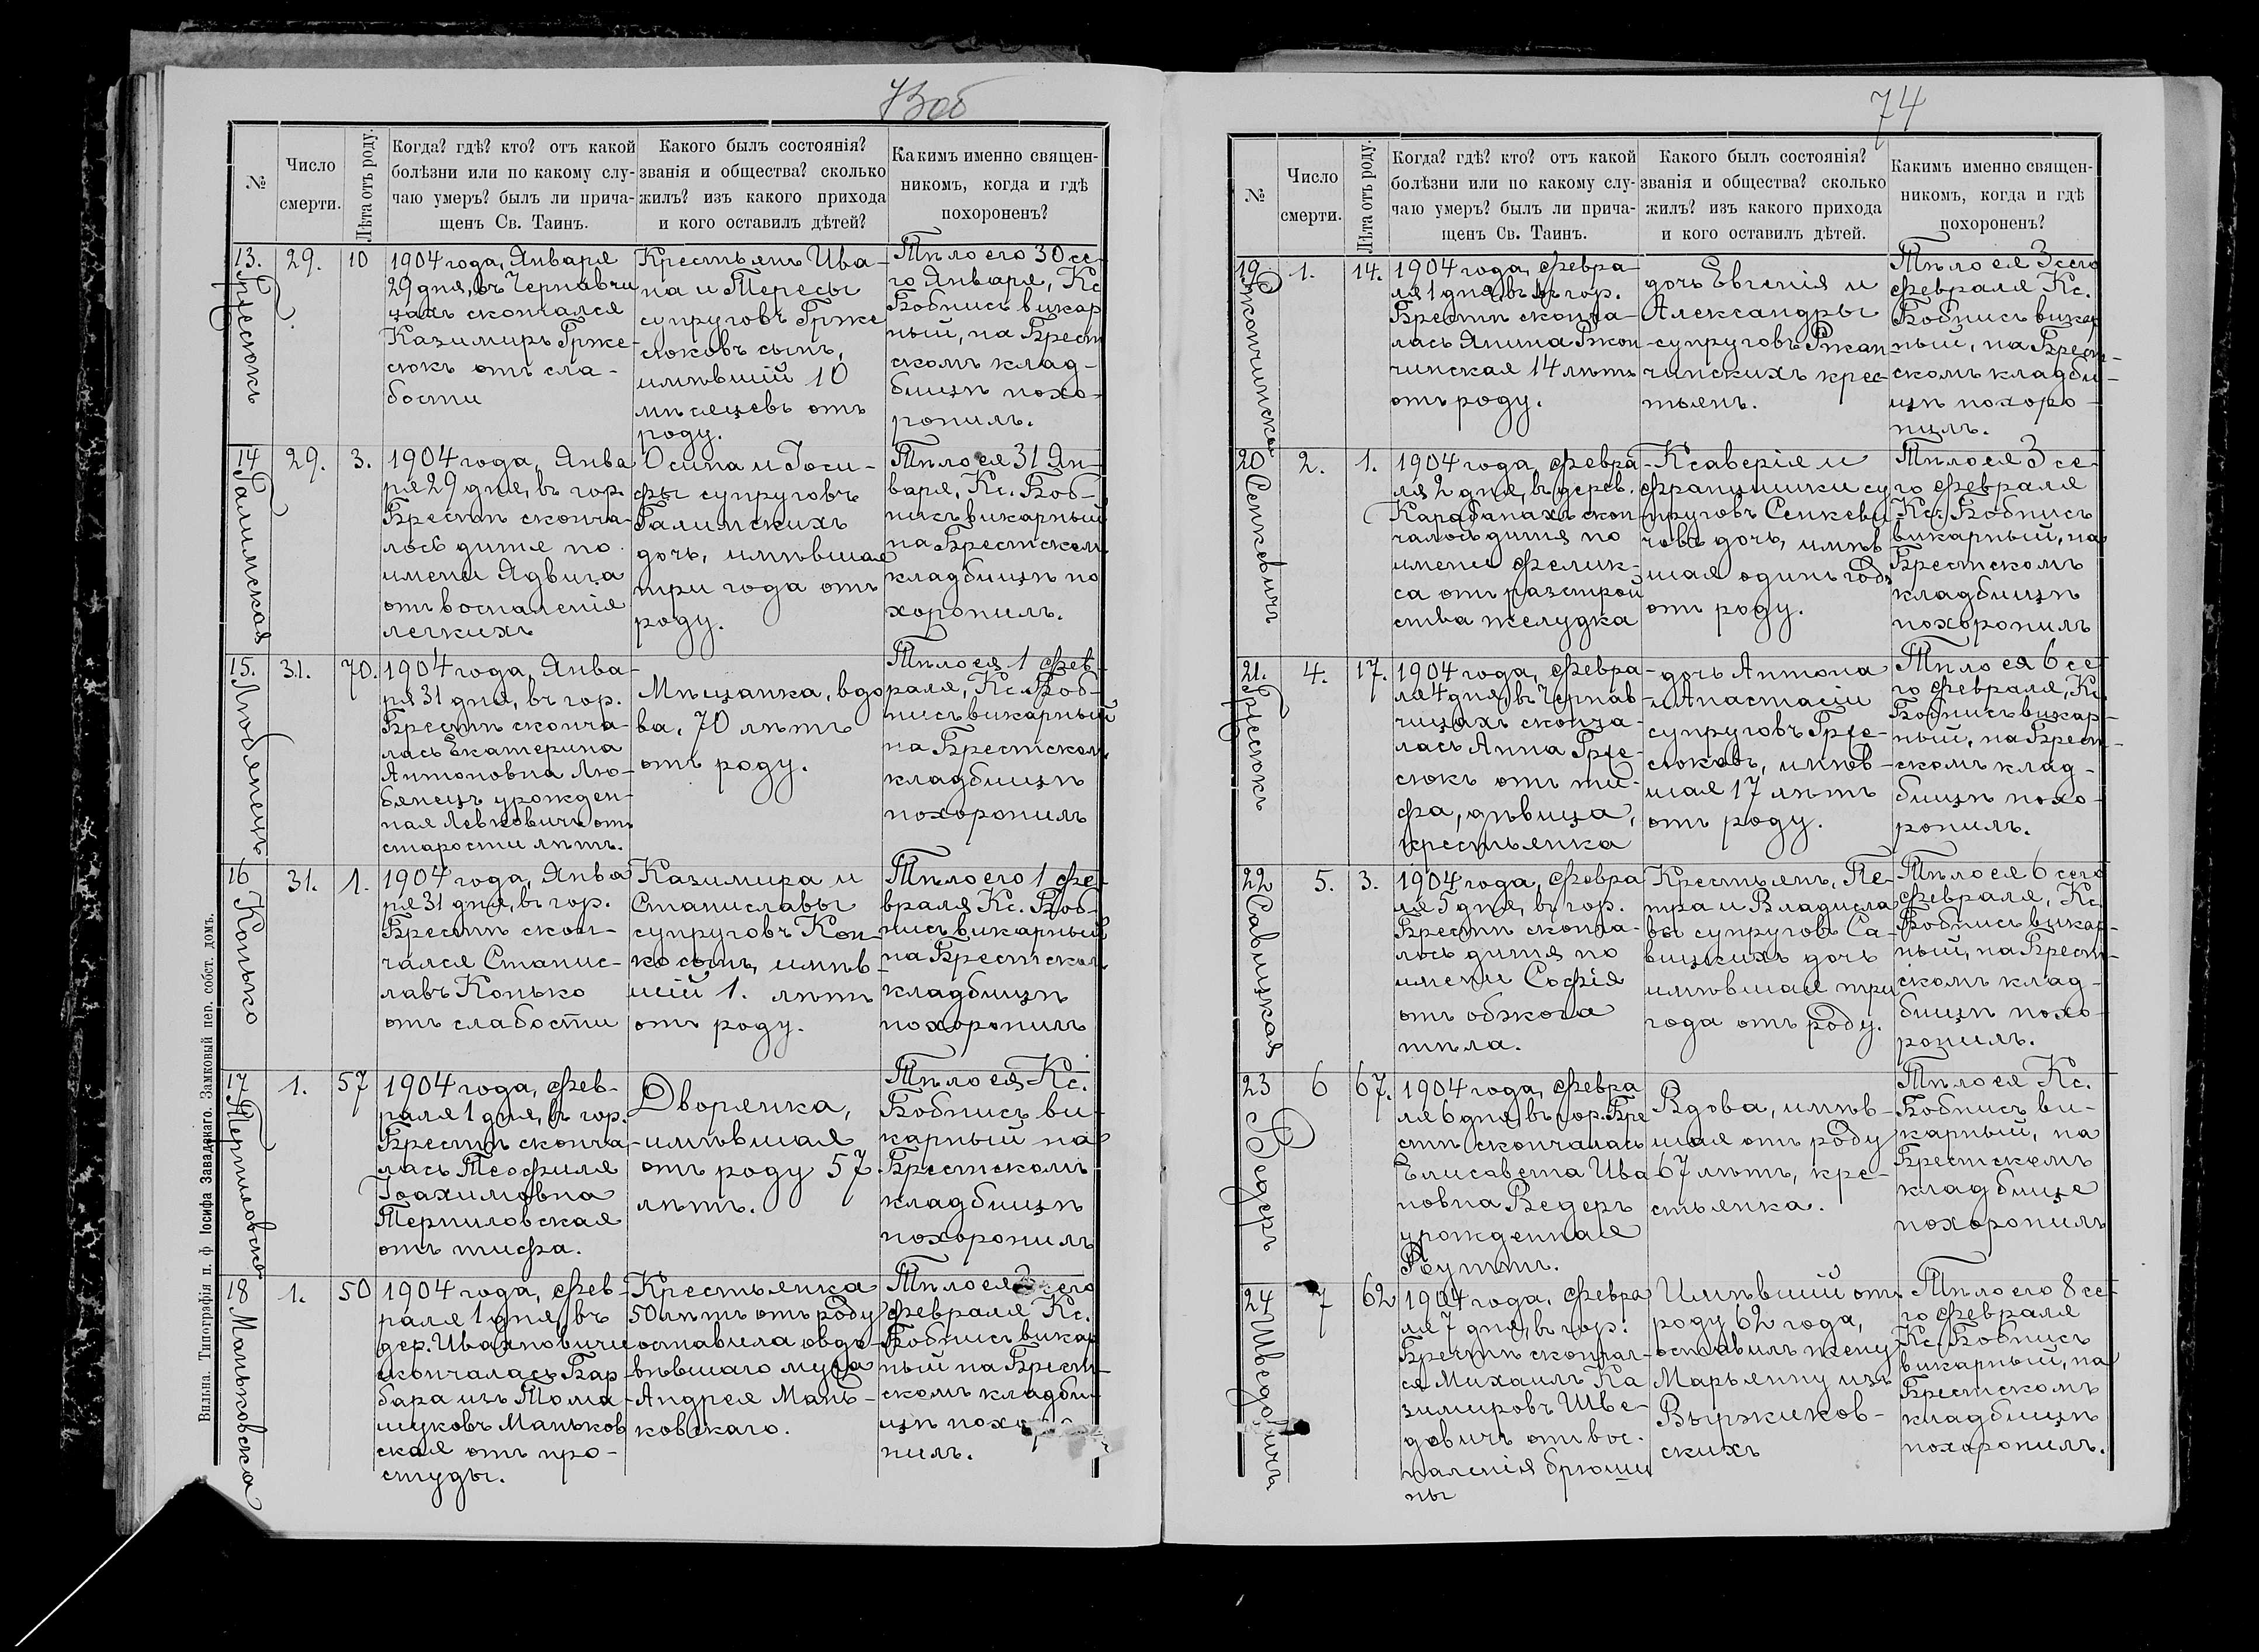 73об
№
Число
смерти.
Лѣта отъ роду.
Когда? гдѣ? кто? отъ какой
болѣзни или по какому слу-
чаю умеръ? былъ ли прича-
щенъ Св. Таинъ.
Какого былъ состоянія?
званія и общества? сколько
жилъ? изъ какого прихода
и кого оставилъ дѣтей?
Какимъ именно священ-
никомъ, когда и гдѣ
похороненъ?
13.
29.
10
1904 года, Января
29 дня, въ Чернавчи
цахъ скончался
Казимиръ Грже-
сюкъ отъ сла-
бости
Крестьянъ Ива-
на и Тересы
супруговъ Грже
сюковъ сынъ,
имѣвшій 10
мѣсяцевъ отъ
роду.
Тѣло его 30 се-
го Января, Кс
Бобнисъ викар
ный, на Брест
скомъ клад-
бищѣ похо-
ронилъ.
14
Галимская
29.
3.
1904 года, Янва
ря 29 дня, въ гор.
Брестѣ сконча-
лось дитя по
имени Ядвига
отъ воспаленія
легкихъ
Осипа и Іоси-
фы супруговъ
Галимскихъ
дочь, имѣвшая
три года отъ
роду.
Тѣло ея 31 Ян-
варя, Кс. Боб-
нисъ викарный
на Брестскомъ
кладбищѣ по
хоронилъ.
15.
Любянецъ
31.
70.
1904 года, Янва-
ря 31 дня, въ гор.
Брестѣ сконча-
лась Екатерина
Антоновна Лю-
бянецъ урожден-
ная Левковичъ отъ
старости лѣтъ.
Мѣщанка, вдо
ва, 70 лѣтъ
отъ роду.
Тѣло ея 1 фев-
раля, Кс. Боб-
нисъ викарный
на Брестскомъ
кладбищѣ
похоронилъ
16
Конько
31.
1.
1904 года, Янва
ря 31 дня, въ гор.
Брестѣ скон-
чался Станис-
лавъ Конько
отъ слабости
Казимира и
Станиславы
супруговъ Кон-
ко сынъ, имѣв-
шій 1. лѣтъ
отъ роду.
Тѣло его 1 фе-
враля Кс. Боб-
нисъ викарный
на Брестском
кладбищѣ
похоронилъ
17
Терпиловска
1.
57
1904 года, фев-
раля 1 дня, въ гор.
Брестѣ сконча-
лась Теофиля
Іоахимовна
Терпиловская
отъ тифа.
Дворянка,
имѣвшая
отъ роду 57
лѣтъ.
Тѣло ея Кс.
Бобнисъ ви-
карный на
Брестскомъ
кладбищѣ
похоронилъ
18
Маньковска
1.
50
1904 года, фев-
раля 1 дня, въ
дер. Ивахновичи
скончалась Бар
бара изъ Тома-
шуковъ Маньков
ская отъ про-
студы.
Крестьянка
50 лѣтъ отъ роду
оставила овдо-
вѣвшаго мужа
Андрея Мань-
ковскаго.
Тѣло ея сего
февраля Кс.
Бобнисъ викар
ный на Брест-
скомъ кладби-
щѣ похо
нилъ.
Вильна. Типографія п. ф. Іосифа Завадзкаго. Замковый пер. собст. домъ.
74
№
Число
смерти.
Лѣта отъ роду.
Когда? гдѣ? кто? отъ какой
болѣзни или по какому слу-
чаю умеръ? былъ ли прича-
щенъ Св. Таинъ.
Какого былъ состоянія?
званія и общества? сколько
жилъ? изъ какого прихода
и кого оставилъ дѣтей.
Какимъ именно священ-
никомъ, когда и гдѣ
похороненъ?
19
1.
14.
1904 года, февра-
ля 1 дня, въ гор.
Брестѣ сконча-
лась Янина Ржон
чинская 14 лѣтъ
отъ роду.
дочь Евгенія и
Александры
супруговъ Ржан-
чинскихъ крес-
тьянъ.
Тѣло ея 3 сего
февраля Кс.
Бобнисъ викар
ный, на Брест-
скомъ кладби-
щѣ похоро-
нилъ.
20
Сенкевичъ
2.
1.
1904 года, февра-
ля 2 дня, въ дерев.
Карабанахъ скон
чалось дитя по
имени Фелик-
са отъ разстрой
ства желудка
Ксаверія и
Францишки су
пруговъ Сенкеви
човъ дочь, имѣв
шая одинъ годъ
отъ роду.
Тѣло ея 3 се-
го февраля
Кс. Бобнисъ
викарный, на
Брестскомъ
кладбищѣ
похоронилъ
21.
4.
17.
1904 года, февра
ля 4 дня, въ Чернав
чицахъ сконча-
лась Анна Грже-
сюкъ отъ ти-
фа, дѣвица,
крестьянка
дочь Антона
и Анастасіи
супруговъ Грже-
сюковъ, имѣв-
шая 17 лѣтъ
отъ роду.
Тѣло ея 6 се-
го февраля, Кс.
Бобнисъ викар-
ный, на Брест-
скомъ клад-
бищѣ похо-
ронилъ.
22
Савицкая
5.
3.
1904 года, февра
ля 5 дня, въ гор.
Брестѣ сконча-
лось дитя по
имени Софія
отъ обжога
тѣла.
Крестьянъ, Пе-
тра и Владисла
вы супруговъ Са-
вицкихъ дочь
имѣвшая три
года отъ роду.
Тѣло ея 6 сего
февраля, Кс.
Бобнисъ викар-
ный, на Брест-
скомъ клад-
бищѣ похо-
ронилъ.
23
Ведеръ
6
67.
1904 года, февра
ля 6 дня, въ гор. Бре
стѣ скончалась
Елисавета Ива
новна Ведеръ
урожденная
Реуттъ.
Вдова, имѣв-
шая отъ роду
67 лѣтъ, кре-
стьянка.
Тѣло ея Кс.
Бобнисъ ви-
карный, на
Брестскомъ
кладбище
похоронилъ
24
7
62
1904 года, февра
ля 7 дня, въ гор.
Брестѣ скончал-
ся Михаилъ Ка
зимировъ Шве-
довичъ отъ вос-
паленія брюши
ны
Имѣвшій отъ
роду 62 года,
оставилъ жену
Марьянну изъ
Выржиков-
скихъ
Тѣло его 8 се-
го февраля
Кс. Бобнисъ
викарный, на
Брестскомъ
кладбищѣ
похоронилъ.